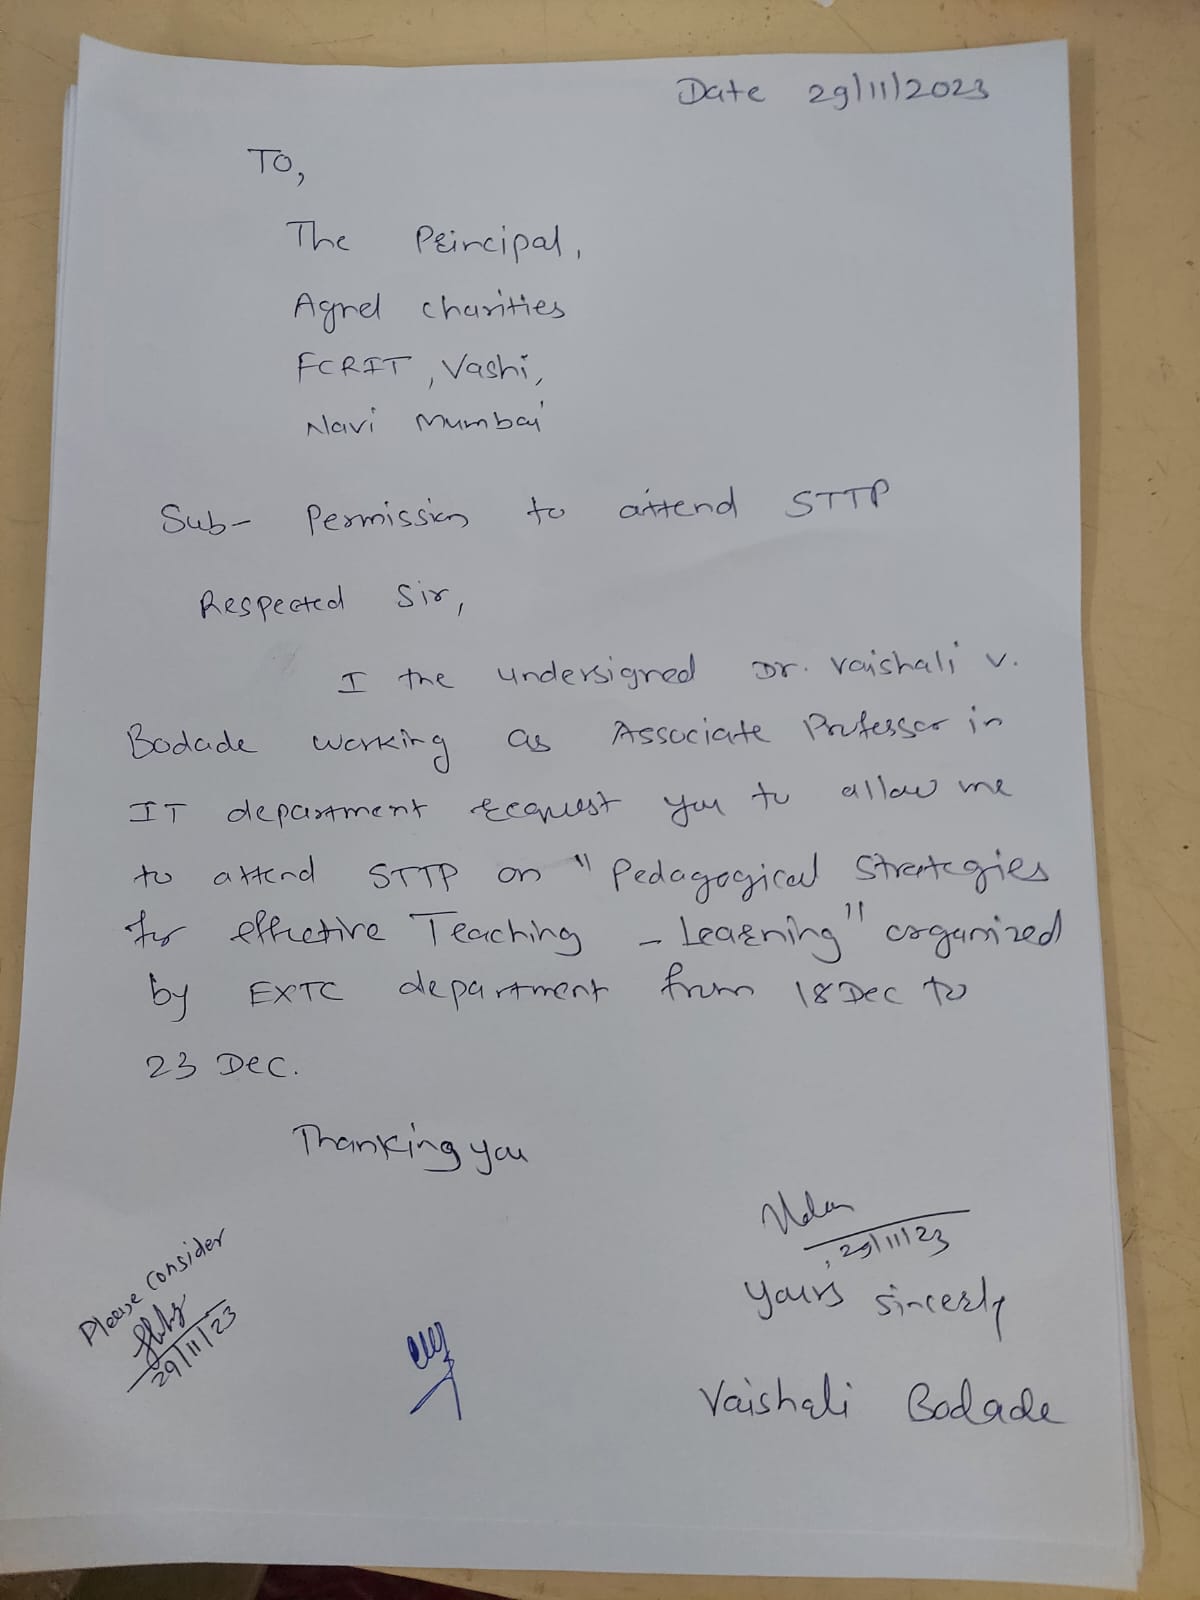 Date 29/11/2023
TO,
The Principal,
Agnel charities
FCRIT, Vashi,
Navi Mumbai
Sub- Permission to attend STTP
Respected Sir,
I the undersigned Dr. Vaishali V.
Bodade working as Associate Professor in
IT department request you to allow me
to attend STTP on "Pedagogical Strategies
for effective Teaching - Learning" organized
by EXTC department from 18 Dec to
23 Dec.
Thanking you
29/11/23
Yours sincerly
Vaishali Bodade
Please consider
29/11/23